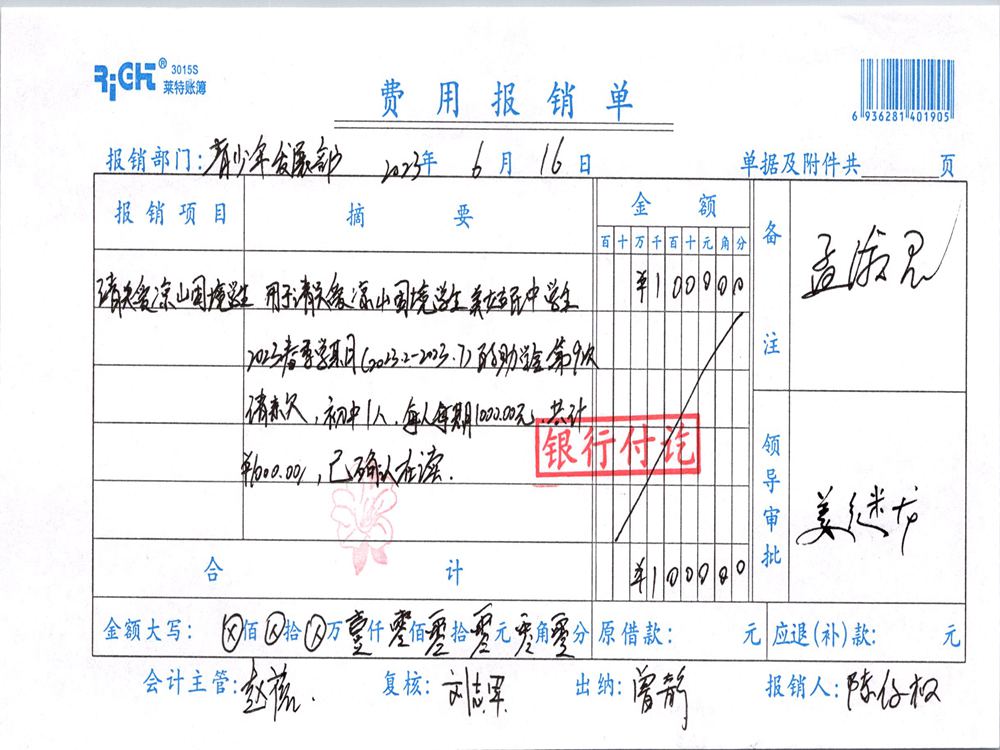 RiGHT® 3015S
莱特账簿
费用报销单
6 936281 401905
报销部门:青少年发展部 2023年 6月 16日 单据及附件共 页
报销项目 摘要 金额 备注
百十万千百十元角分
请关爱凉山困境学生 用于请关爱凉山困境学生 民中学生 ¥100000
2023春季学期(2023.2-2023.7)的助学金第9次
请款,初中1人,每人每期1000.00元,共计
¥1000.00,已确认在读.
银行付讫
孟 思
领导审批
姜继龙
合计 ¥100000
金额大写: ⊗佰⊗拾⊗万壹仟零佰零拾零元零角零分 原借款: 元 应退(补)款: 元
会计主管:赵 复核:刘志军 出纳:曾静 报销人:陈仔权